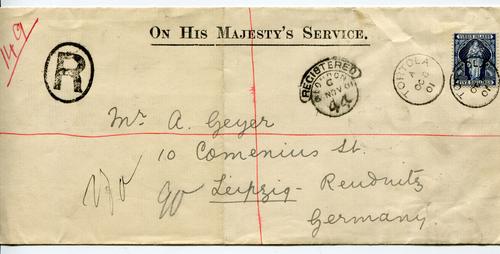 149
ON HIS MAJESTY'S SERVICE.
R
REGISTERED
LONDON
NOV 01
TORTOLA
A
OC
01
VIRGIN ISLANDS
FIVE SHILLINGS
Mr A. Geyer
10 Comenius St.
90 Leipzig - Reudnitz
Germany.